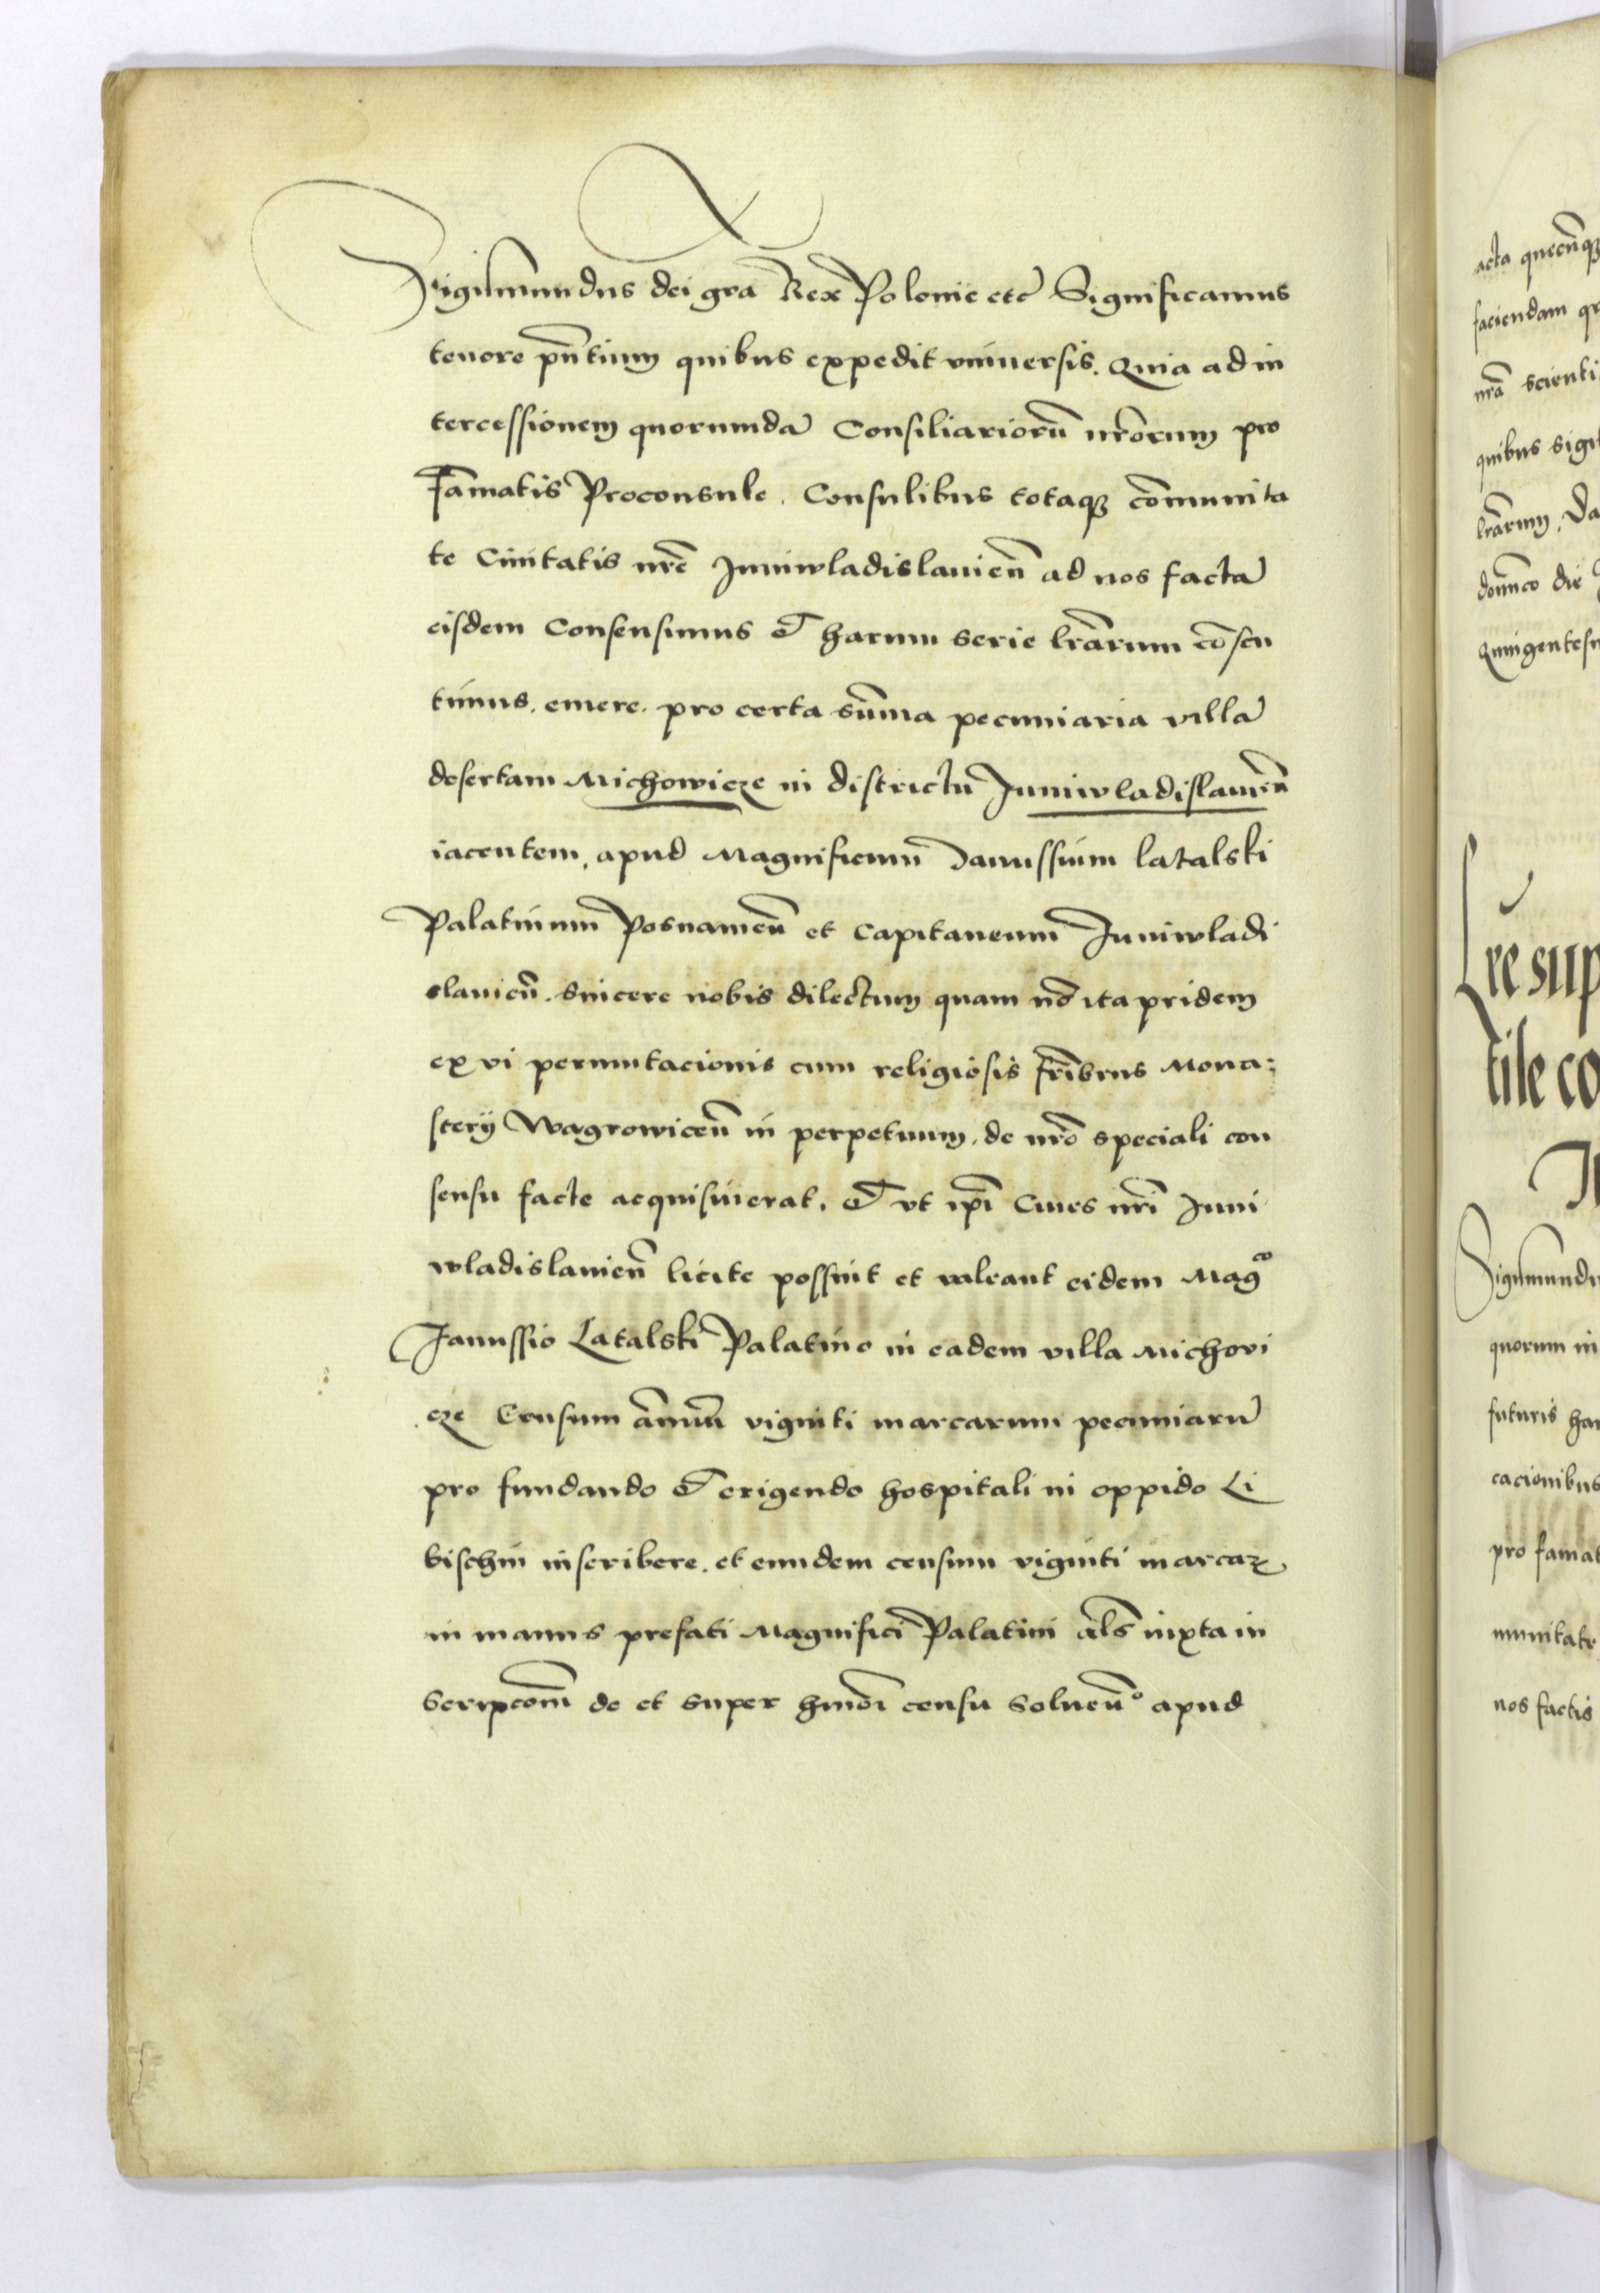 Sigismundus dei gra Rex Polonie etc Significamus
tenore pñtium quibus expedit vniuersis. Quia ad in
tercessionem quorumdã Consiliariorũ nrõrum pro
Famatis Proconsule. Consulibus totaqȝ cõmunita
te Ciuitatis nrẽ Juniwladislauieñ ad nos factã
eisdem Consensimus et harum serie lrãrum cõsen
timus. emere. pro certa sũma pecuniaria villã
desertam Michowicze in districtu Juniwladislauieñ
iacentem, apud Magnificum Janussium latalski
Palatinum Posnanieñ et Capitaneum Juniwladi
slauieñ. sincere nobis dilectum quam nõ ita pridem
ex vi permutacionis cum religiosis frĩbus Mona:
sterij Wagrowiceñ in perpetuum. de nrõ speciali con
sensu facte acquisiuerat. et vt ipĩ Ciues nrĩ Juni
wladislauieñ licite possint et valeant eidem Mag^co
Janussio Latalski Palatino in eadem villa Michovi
cze Censum ãnuũ viginti marcarum pecuniarũ
pro fundando et erigendo hospitali in oppido Li
bischin inscribere. et eundem censum viginti marcaꝝ
in manus prefati Magnifici Palatini als̃ iuxta in
scripcõm de et super hmõi censu solueñº apud
acta quecũqȝ
faciendam
nrã scienti
quibus sigi
lrãrum. Da
domĩco die
Quingentesi
Lre sup
tile co
Sigismundu
quorum in
futuris har
cacionibus
pro famat
munitate
nos factis